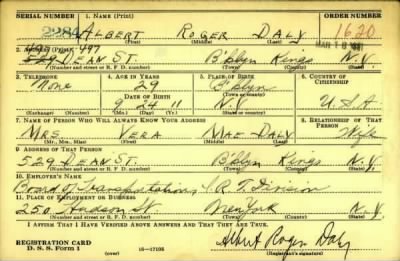 SERIAL NUMBER 1. NAME (Print) ORDER NUMBER
ALBERT ROGER DALY 1620
(First) (Middle) (Last)
497
529 DEAN ST. B'klyn Kings N.Y.
(Number and street or R. F. D. number) (Town) (County) (State)
3. TELEPHONE 4. AGE IN YEARS 5. PLACE OF BIRTH 6. COUNTRY OF CITIZENSHIP
None 29 B'klyn
DATE OF BIRTH (Town or county)
9 24 11 N.Y. U.S.A
(Exchange) (Number) (Mo.) (Day) (Yr.) (State or country)
7. NAME OF PERSON WHO WILL ALWAYS KNOW YOUR ADDRESS 8. RELATIONSHIP OF THAT PERSON
MRS VERA MAE DALY Wife
(Mr., Mrs., Miss) (First) (Middle) (Last)
9. ADDRESS OF THAT PERSON
529 DEAN ST. B'klyn Kings N.Y.
(Number and street or R. F. D. number) (Town) (County) (State)
10. EMPLOYER'S NAME
Board of Transportations I.R.T. Division
11. PLACE OF EMPLOYMENT OR BUSINESS
250 Hudson St. New York N.Y.
(Number and street or R. F. D. number) (Town) (County) (State)
I AFFIRM THAT I HAVE VERIFIED ABOVE ANSWERS AND THAT THEY ARE TRUE.
REGISTRATION CARD
D. S. S. Form 1 (over) 16—17105
Albert Roger Daly
(Registrant's signature)